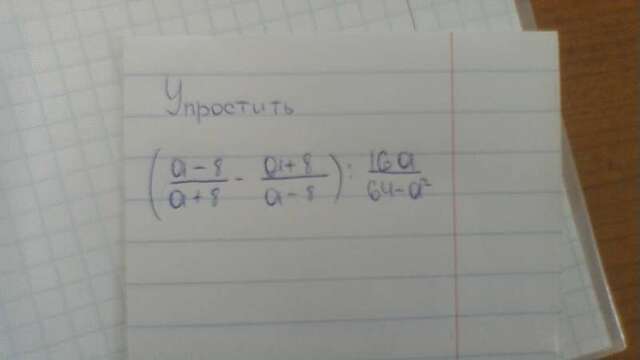 Упростить
(a-8/a+8 - a+8/a-8) : 16a/64-a²